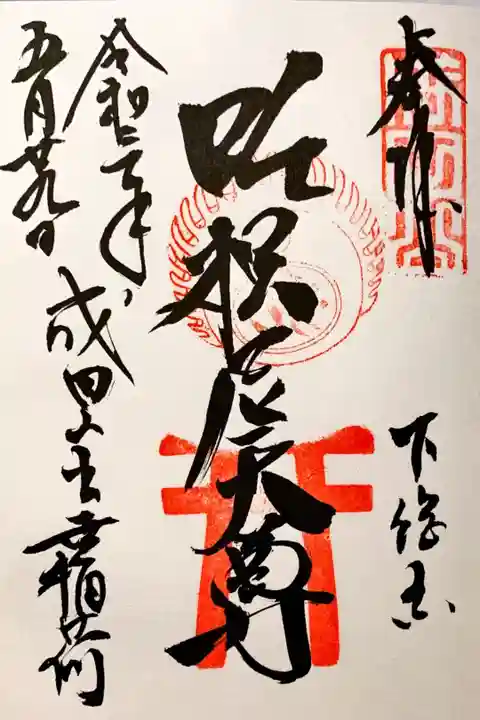 奉拝
下総国
吒枳尼天尊
令和二年
五月廿九日
成田山出世稲荷